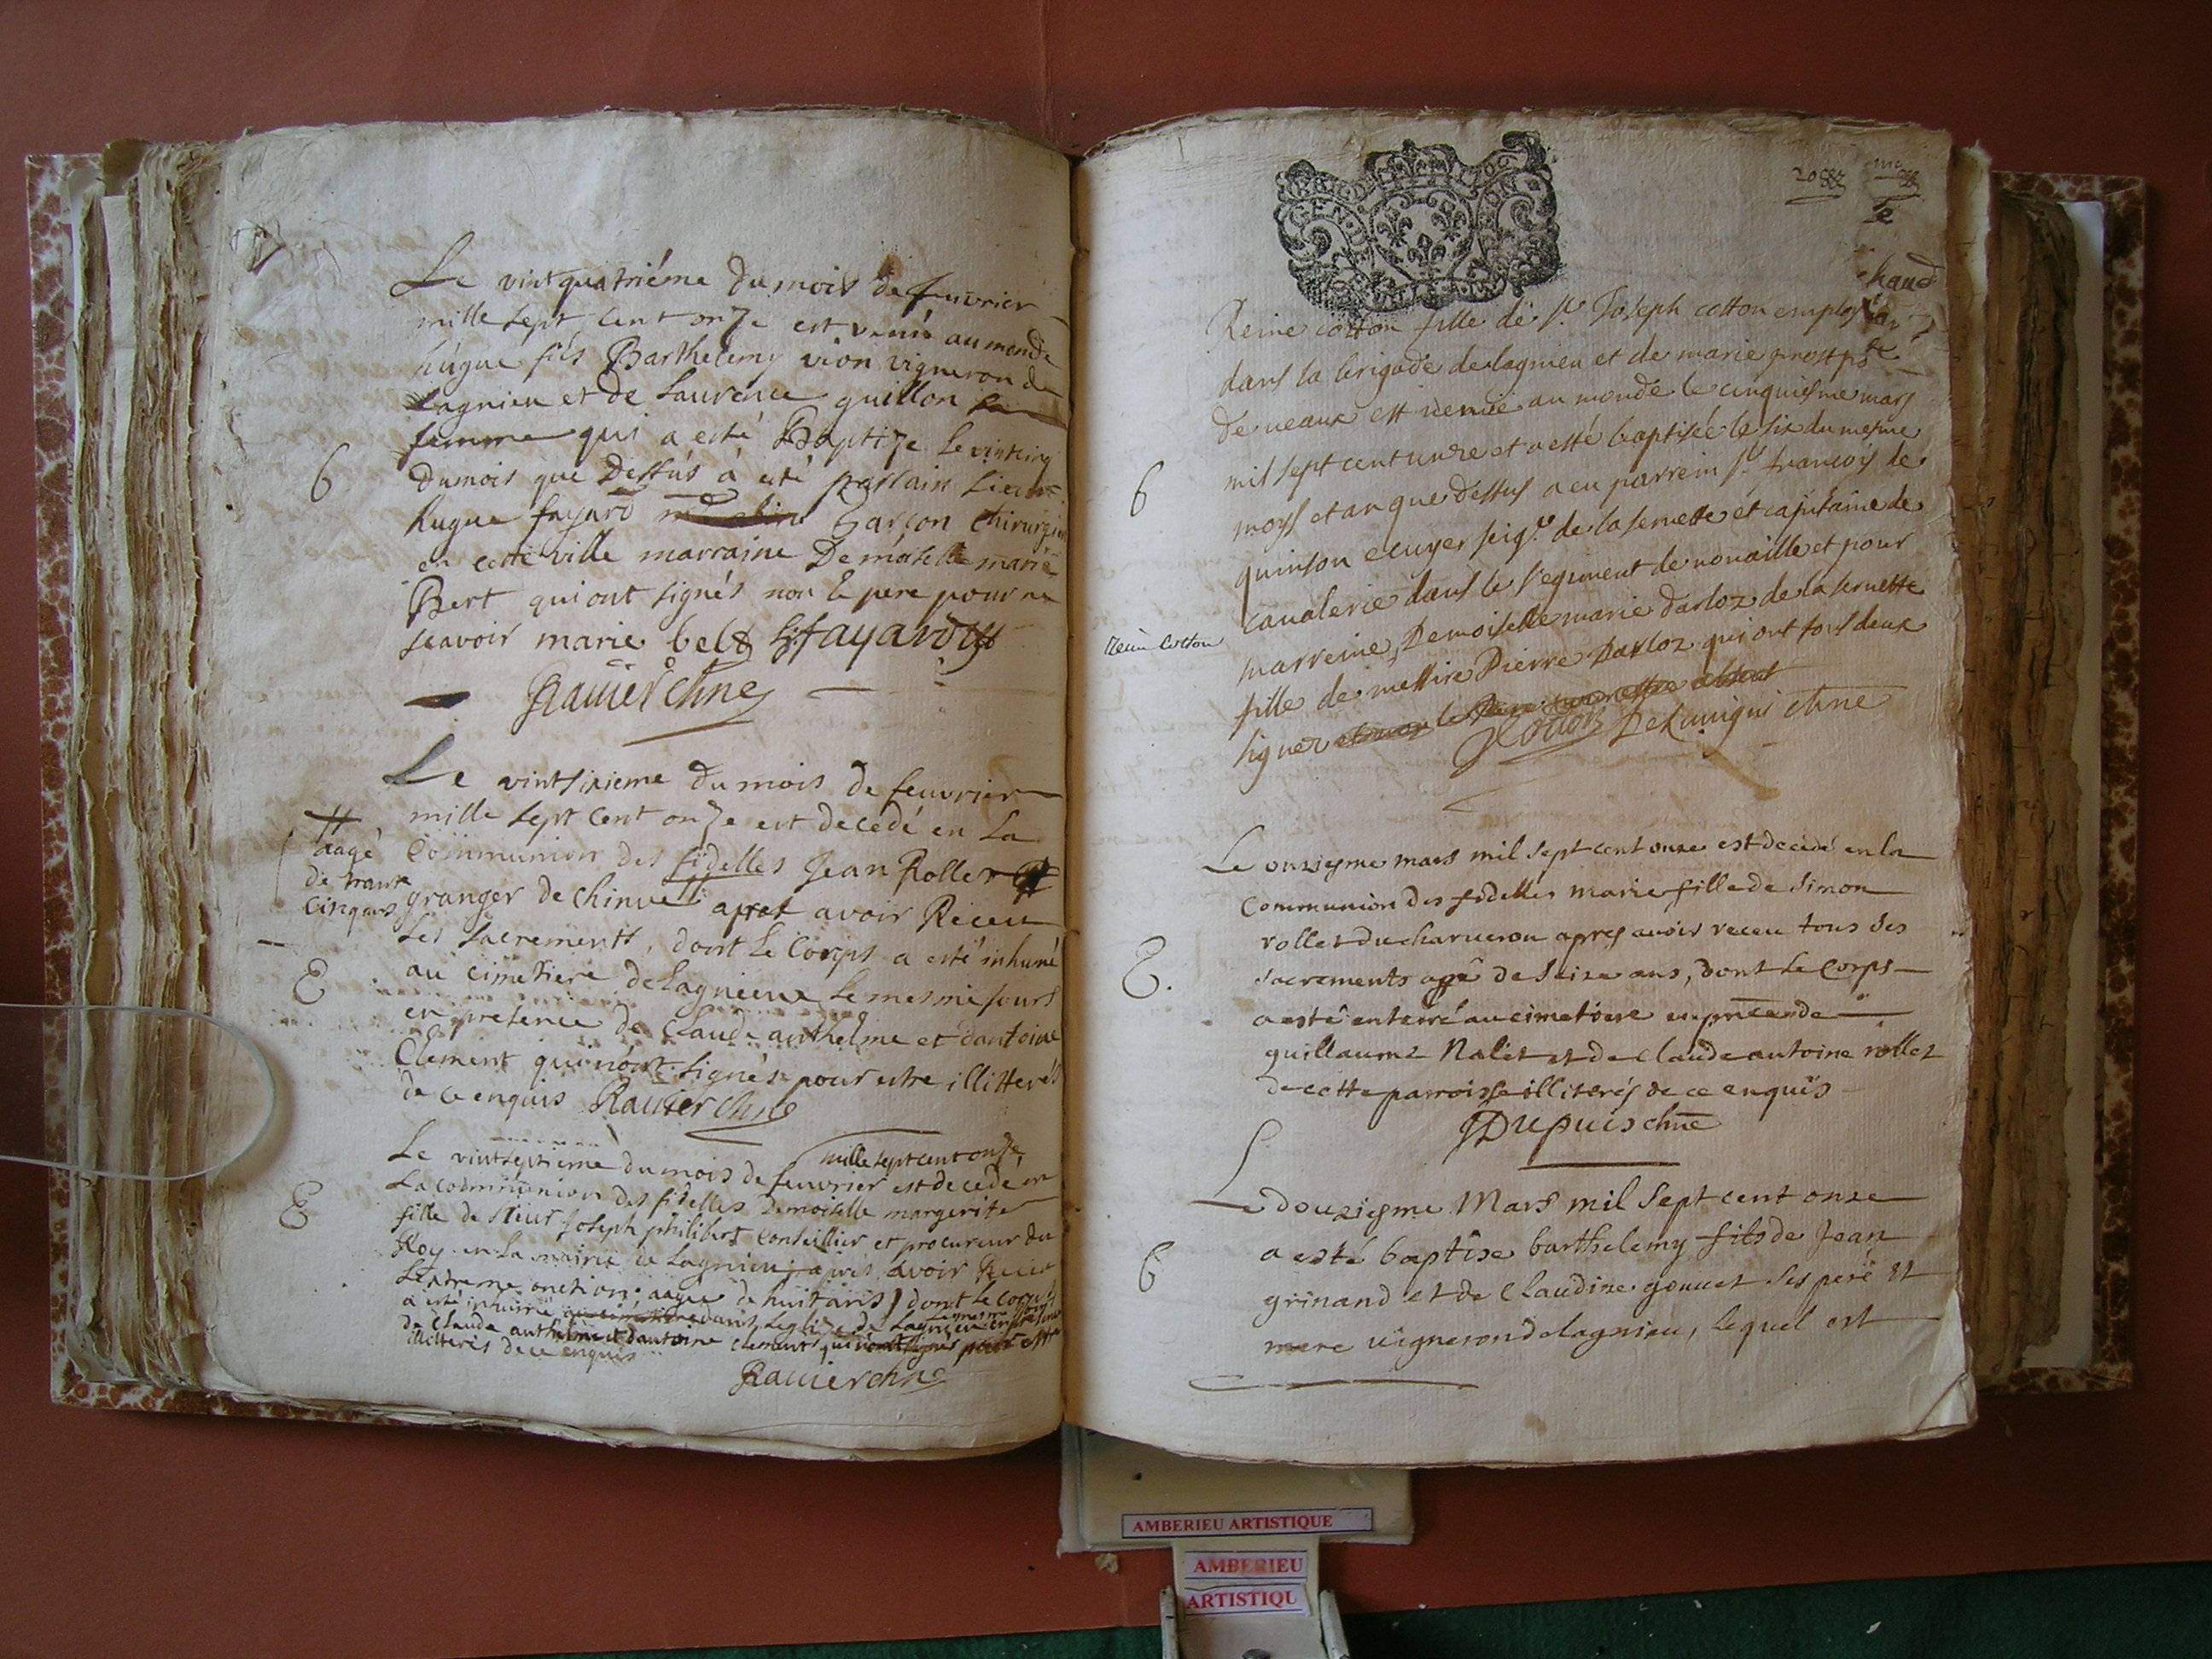 Le vintquatriéme du mois de feuvrier
mille sept cent onze est venu au monde
hugue fils Barthelemy vion vigneron de
Lagnieu et de Laurence guillon sa
femme qui a esté Baptize le vintcinq
B
du mois que Dessus à esté parrain Sieur
hugue fayard Garçon chirurgien
en cette ville marraine Demoiselle marie
Bert qui ont signés non le pere pour ne
scavoir marie belt fayard
Rauier chne
Le vintsixieme du mois de feuvrier
mille sept cent onze est decedé en La
Communion des fidelles Jean Rollet
aagé
de trante
cinq ans
granger de Chinve apret avoir Receu
Les Sacrementt, dont Le Corps a esté inhumé
au cimetiere de Lagnieue Le mesme jours
E
en presence de Claude anthelme et dantoine
Clement qui nont signés pour estre illitterés
de ce enquis Rauier chne
mille sept cent onze
Le vintseptieme du mois de feuvrier est decedé en
La communion des fidelles Demoiselle margerite
E
fille de sieur Joseph philibert Conseillier et procureur du
Roy en La mairie de Lagnieu apres avoir Receu
Lextreme onction aagée de huit ans, dont le corps
a esté inhumé dans Leglize de Lagnieu en presence
de Claude anthelme et dantoine clement qui nont signés pour estre
illitterés de ce enquis
Rauier chne
haud
Reine cotton fille de sr Joseph cotton employé
dans la brigade de lagnieu et de marie prost
de ueaux est uenue au monde le cinquiesme mars
mil sept cent unze et a esté baptisée le six du mesme
B
moys et an que dessus a eu parrein sr francoys de
quinson ecuyer seigr de la seruette et capitaine de
caualerie dans le regiment de nouaille et pour
Reine Cotton
marreine Demoiselle marie darloz de la seruette
fille de messire Pierre Darloz qui ont tous deux
signer
Delauigni chne
Le onziesme mars mil sept cent onze est decedé en la
Communion des fidelles marie fille de Simon
rollet du charueron apres avoir receu tous ses
E.
sacrements agé de seize ans, dont le Corps
a esté enterré au cimetiere en presence de
guillaume Nalet et de claude antoine rollet
de cette parroisse illiterés de ce enquis
Dupuis chne
Le douziesme Mars mil sept cent onze
a esté baptise barthelemy fils de Jean
B
grinand et de Claudine gonuet ses pere et
mere uigneron de lagnieu, lequel est
AMBERIEU ARTISTIQUE
AMBERIEU
ARTISTIQU